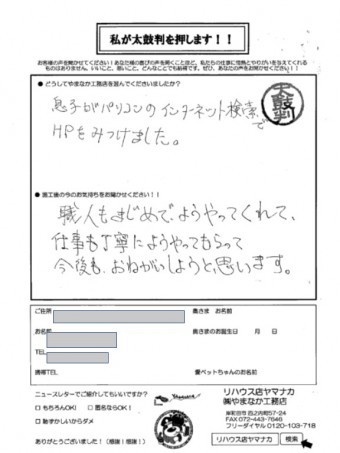 私が太鼓判を押します！！
お客様の声を聞かせてください！あなた様の喜びの声を聞くことほど、私たちの仕事に情熱とやりがいを与えてくれる
ものはありません。いいこと、悪いこと、どんなことでも結構です。ぜひ、あなたの声をお聞かせください！！
● どうしてやまなか工務店を選んでくださいましたか？
太鼓判
息子がパソコンのインターネット検索で
HPをみつけました。
● 施工後の今のお気持ちをお聞かせください！！
職人もまじめで、ようやってくれて、
仕事も丁寧にようやってもらって
今後も、おねがいしようと、思います。
ご住所
奥さま お名前
お名前
奥さまのお誕生日 月 日
TEL
携帯TEL
愛ペットちゃんのお名前
ニュースレターでご紹介してもいいですか？
□ もちろんOK！ □ 匿名ならOK！
□ 恥ずかしいからダメ
ありがとうございました！（感謝！感謝！）
リハウス店ヤマナカ
㈱やまなか工務店
FAX 072-443-7646
フリーダイヤル 0120-103-718
リハウス店ヤマナカ 検索